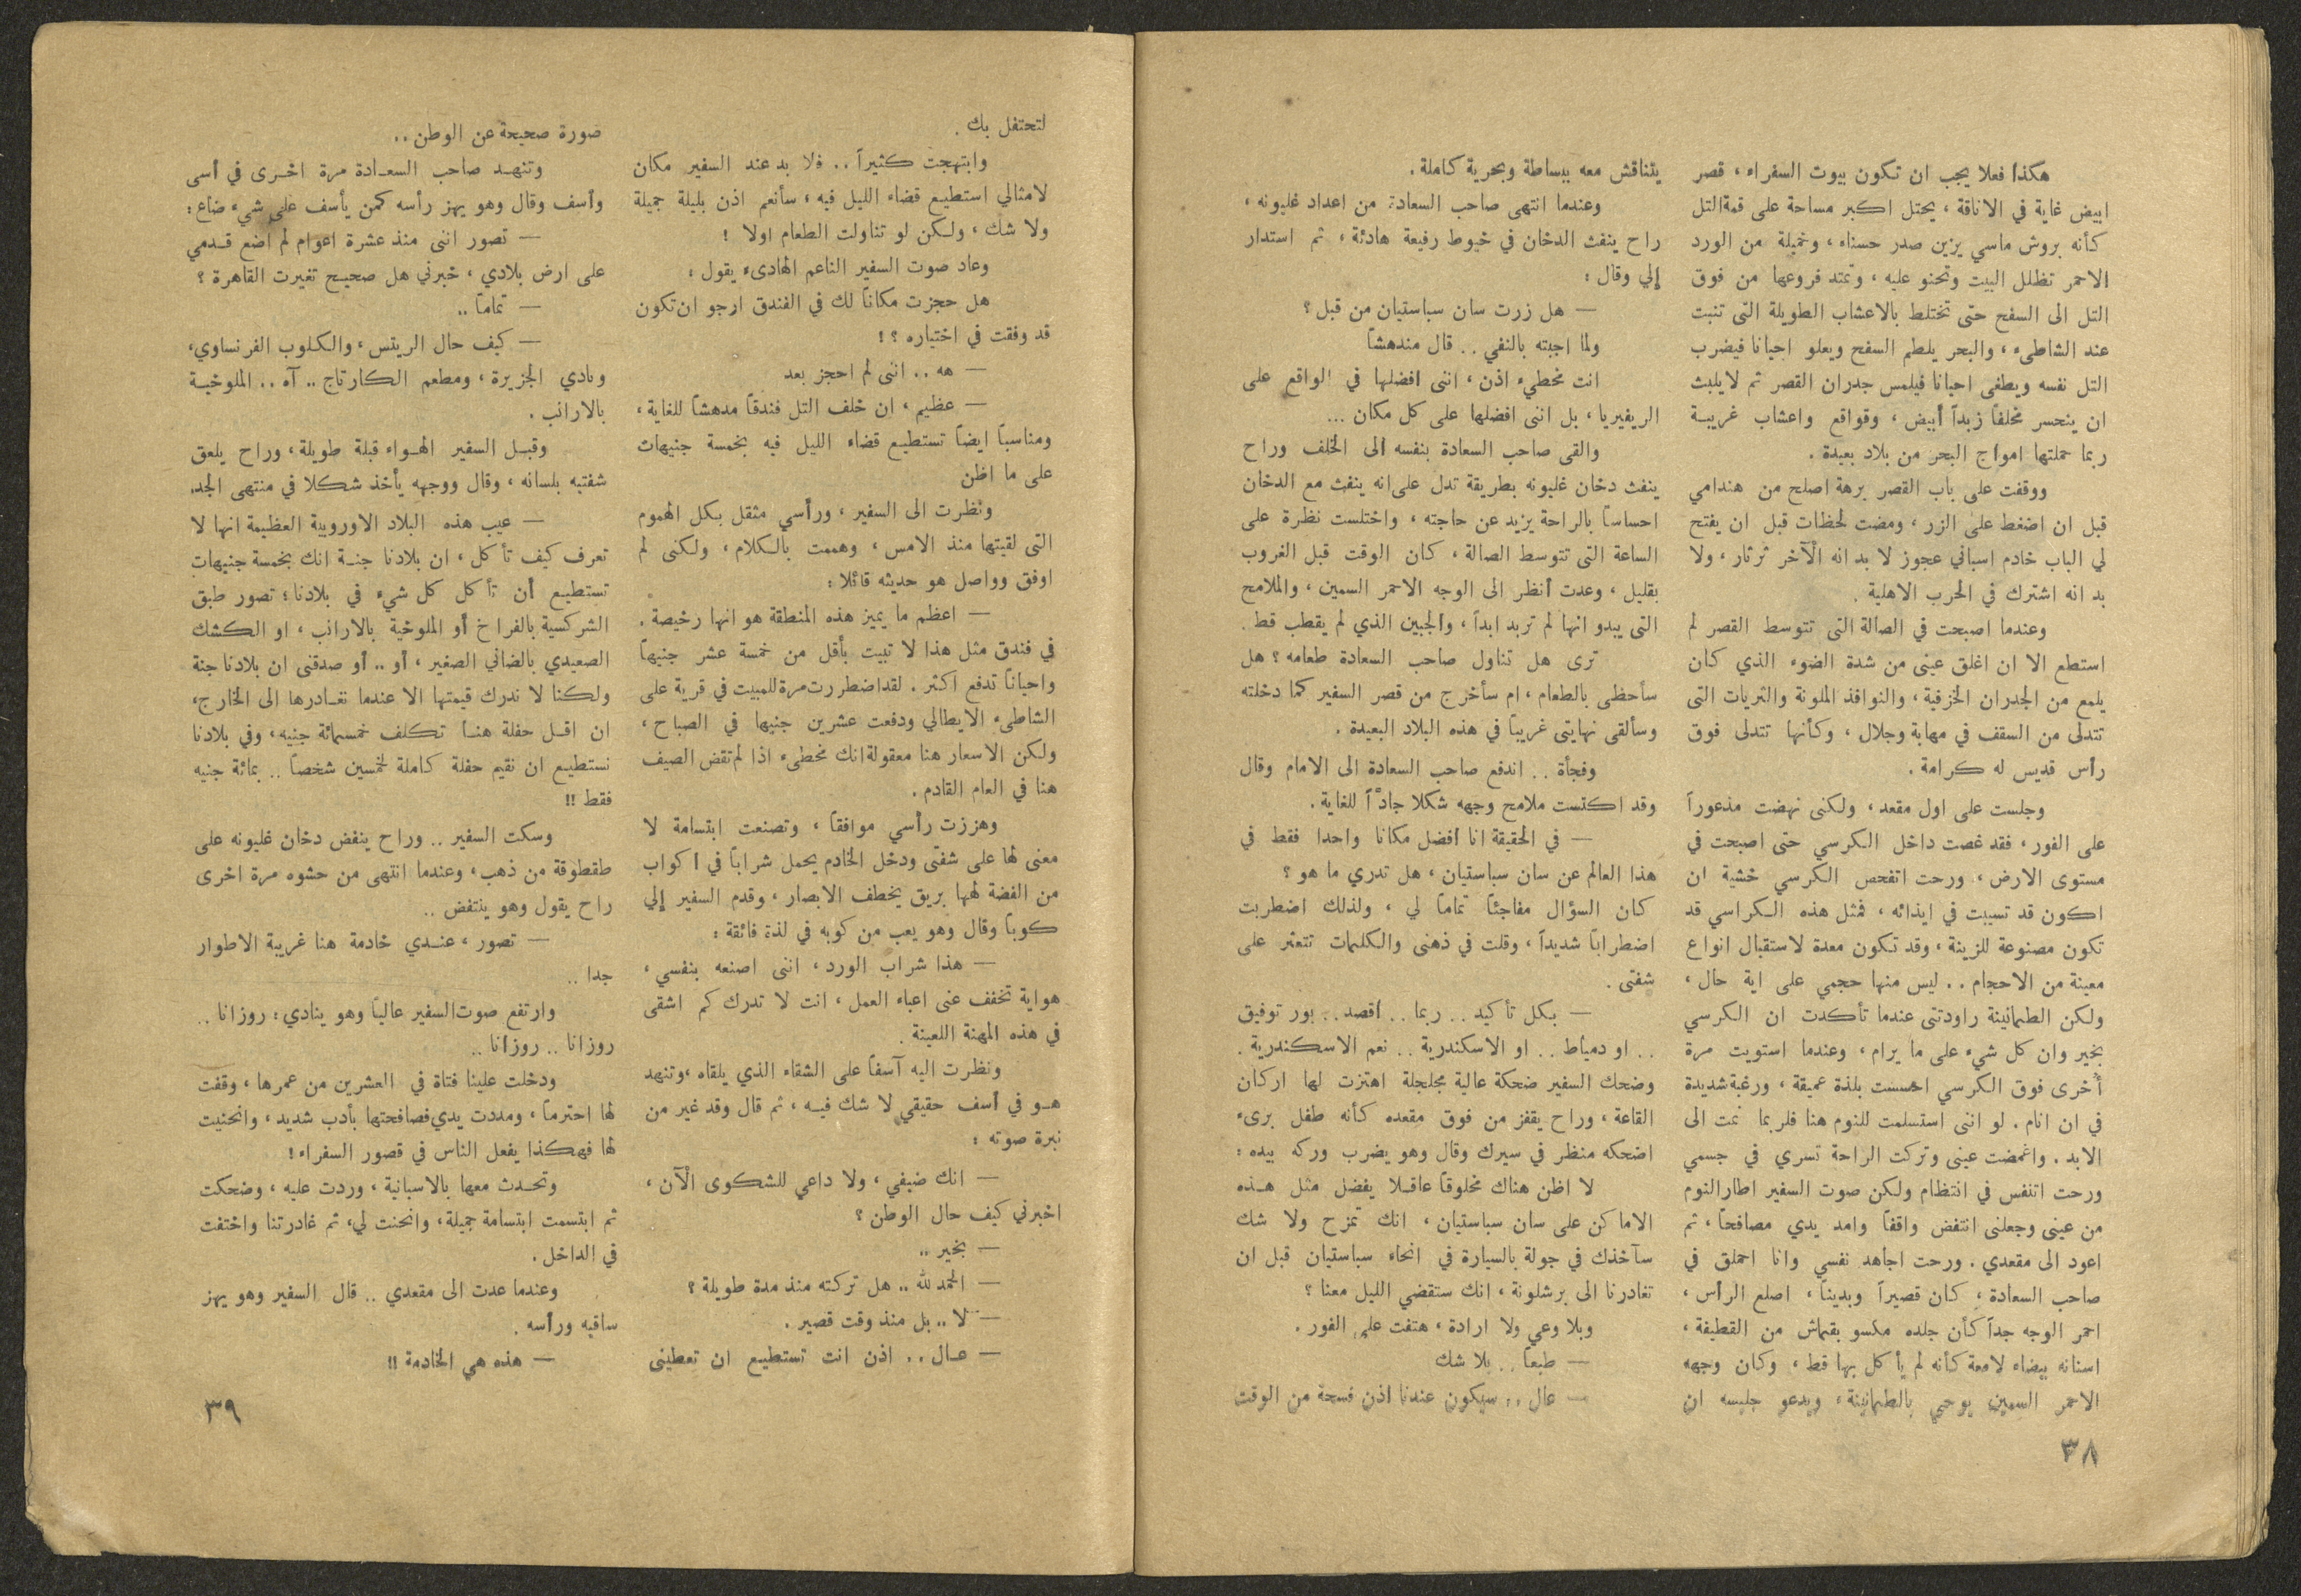 هكذا فعلا يجب ان تكون بيوت السفراء ، قصر
ابيض غاية في الاناقة ، يحتل اكبر مساحة على قمة التل
كأنه بروش ماسي يزين صدر حسناء ، وخميلة من الورد
الاحمر تظلل البيت وتحنو عليه ، وتمتد فروعها من فوق
التل الى السفح حتى تختلط بالاعشاب الطويلة التى تنبت
عند الشاطىء ، والبحر يلطم السفح ويعلو احيانا فيضرب
التل نفسه ويطغى احيانا فيلمس جدران القصر ثم لا يلبث
ان ينحسر مخلفاً زبداً أبيض ، وقواقع واعشاب غريبة
ربما حملتها امواج البحر من بلاد بعيدة .
ووقفت على باب القصر برهة اصلح من هندامي
قبل ان اضغط على الزر ، ومضت لحظات قبل ان يفتح
لي الباب خادم اسباني عجوز لا بد انه الآخر ثرثار ، ولا
بد انه اشترك في الحرب الاهلية .
وعندما اصبحت في الصالة التى تتوسط القصر لم
استطع الا ان اغلق عينى من شدة الضوء الذي كان
يلمع من الجدران الخزفية ، والنوافذ الملونة والثريات التى
تتدلى من السقف في مهابة وجلال ، وكأنها تتدلى فوق
رأس قديس له كرامة .
وجلست على اول مقعد ، ولكنى نهضت مذعوراً
على الفور ، فقد غصت داخل الكرسي حتى اصبحت في
مستوى الارض ، ورحت اتفحص الكرسي خشية ان
اكون قد تسببت في ايذائه ، فمثل هذه الكراسي قد
تكون مصنوعة للزينة ، وقد تكون معدة لاستقبال انواع
معينة من الاحجام . . ليس منها حجمي على اية حال ،
ولكن الطمانينة راودتنى عندما تأكدت ان الكرسي
بخير وان كل شيء على ما يرام ، وعندما استويت مرة
أخرى فوق الكرسي احسست بلذة عميقة ، ورغبة شديدة
في ان انام . لو اننى استسلمت للنوم هنا فلربما نمت الى
الابد . واغمضت عينى وتركت الراحة تسري في جسمي
ورحت اتنفس في انتظام ولكن صوت السفير اطار النوم
من عينى وجعلنى انتفض واقفاً وامد يدي مصافحاً ، ثم
اعود الى مقعدي . ورحت اجاهد نفسي وانا احملق في
صاحب السعادة ، كان قصيراً وبديناً ، اصلع الرأس ،
احمر الوجه جداً كأن جلده مكسو بقماش من القطيفة ،
اسنانه بيضاء لامعة كأنه لم يأكل بها قط ، وكان وجهه
الاحمر السمين يوحي بالطمانينة ، ويدعو جليسه ان
٣٨
يتناقش معه ببساطة وبحرية كاملة .
وعندما انتهى صاحب السعادة من اعداد غليونه ،
راح ينفث الدخان في خيوط رفيعة هادئة ، ثم استدار
إلي وقال :
— هل زرت سان سباستيان من قبل ؟
ولما اجبته بالنفي . . قال مندهشاً
انت مخطيء اذن ، اننى افضلها في الواقع على
الريفيريا ، بل اننى افضلها على كل مكان ...
والقى صاحب السعادة بنفسه الى الخلف وراح
ينفث دخان غليونه بطريقة تدل على انه ينفث مع الدخان
احساساً بالراحة يزيد عن حاجته ، واختلست نظرة على
الساعة التى تتوسط الصالة ، كان الوقت قبل الغروب
بقليل ، وعدت أنظر الى الوجه الاحمر السمين ، والملامح
التى يبدو انها لم تربد ابداً ، والجبين الذي لم يقطب قط .
ترى هل تناول صاحب السعادة طعامه ؟ هل
سأحظى بالطعام ، ام سأخرج من قصر السفير كما دخلته
وسألقى نهايتى غريباً في هذه البلاد البعيدة .
وفجأة . . اندفع صاحب السعادة الى الامام وقال
وقد اكتست ملامح وجهه شكلا جاداً للغاية .
— في الحقيقة انا أفضل مكانا واحدا فقط في
هذا العالم عن سان سباستيان ، هل تدري ما هو ؟
كان السؤال مفاجئاً تماماً لي ، ولذلك اضطربت
اضطراباً شديداً ، وقلت في ذهنى والكلمات تتعثر على
شفتى .
— بكل تأكيد . . ربما . . أقصد . . بور توفيق
. . او دمياط . . او الاسكندرية . . نعم الاسكندرية .
وضحك السفير ضحكة عالية مجلجلة اهتزت لها اركان
القاعة ، وراح يقفز من فوق مقعده كأنه طفل برىء
اضحكه منظر في سيرك وقال وهو يضرب وركه بيده :
لا اظن هناك مخلوقاً عاقلا يفضل مثل هذه
الاماكن على سان سباستيان ، انك تمزح ولا شك
سآخذك في جولة بالسيارة في انحاء سباستيان قبل ان
تغادرنا الى برشلونة ، انك ستقضي الليل معنا ؟
وبلا وعي ولا ارادة ، هتفت على الفور .
— طبعاً . . بلا شك
— عال . . سيكون عندنا اذن فسحة من الوقت
لتحتفل بك .
وابتهجت كثيراً . . فلا بد عند السفير مكان
لامثالي استطيع قضاء الليل فيه ، سأنعم اذن بليلة جميلة
ولا شك ، ولكن لو تناولت الطعام اولا !
وعاد صوت السفير الناعم الهادىء يقول :
هل حجزت مكاناً لك في الفندق ارجو ان تكون
قد وفقت في اختياره ؟ !
— هه . . اننى لم احجز بعد
— عظيم ، ان خلف التل فندقاً مدهشاً للغاية ،
ومناسباً ايضاً تستطيع قضاء الليل فيه بخمسة جنيهات
على ما اظن
ونظرت الى السفير ، ورأسي مثقل بكل الهموم
التى لقيتها منذ الامس ، وهممت بالكلام ، ولكنى لم
اوفق وواصل هو حديثه قائلا :
— اعظم ما يميز هذه المنطقة هو انها رخيصة .
في فندق مثل هذا لا تبيت بأقل من خمسة عشر جنيهاً
واحياناً تدفع اكثر . لقد اضطررت مرة للمبيت في قرية على
الشاطىء الايطالي ودفعت عشرين جنيها في الصباح ،
ولكن الاسعار هنا معقولة انك مخطىء اذا لم تقض الصيف
هنا في العام القادم .
وهززت رأسي موافقاً ، وتصنعت ابتسامة لا
معنى لها على شفتى ودخل الخادم يحمل شراباً في اكواب
من الفضة لها بريق يخطف الابصار ، وقدم السفير إلي
كوباً وقال وهو يعب من كوبه في لذة فائقة :
— هذا شراب الورد ، اننى اصنعه بنفسي ،
هواية تخفف عنى اعباء العمل ، انت لا تدرك كم اشقى
في هذه المهنة اللعينة .
ونظرت اليه آسفاً على الشقاء الذي يلقاه ، وتنهد
هو في أسف حقيقي لا شك فيه ، ثم قال وقد غير من
نبرة صوته :
— انك ضيفي ، ولا داعي للشكوى الآن ،
اخبرني كيف حال الوطن ؟
— بخير ..
— الحمد لله .. هل تركته منذ مدة طويلة ؟
— لا .. بل منذ وقت قصير .
— عال .. اذن انت تستطيع ان تعطينى
صورة صحيحة عن الوطن ..
وتنهد صاحب السعادة مرة اخرى في أسى
وأسف وقال وهو يهز رأسه كمن يأسف على شيء ضاع :
— تصور اننى منذ عشرة اعوام لم اضع قدمي
على ارض بلادي ، خبرني هل صحيح تغيرت القاهرة ؟
— تماماً ..
— كيف حال الريتس ، والكلوب الفرنساوي ،
ونادي الجزيرة ، ومطعم الكارتاج .. آه .. الملوخية
بالارانب .
وقبل السفير الهواء قبلة طويلة ، وراح يلعق
شفتيه بلسانه ، وقال ووجهه يأخذ شكلا في منتهى الجد .
— عيب هذه البلاد الاوروبية العظيمة انها لا
تعرف كيف تأكل ، ان بلادنا جنة انك بخمسة جنيهات
تستطيع أن تأكل كل شيء في بلادنا ؛ تصور طبق
الشركسية بالفراخ أو الملوخية بالارانب ، او الكشك
الصعيدي بالضاني الصغير ، أو .. أو صدقنى ان بلادنا جنة
ولكنا لا ندرك قيمتها الا عندما نغادرها الى الخارج ،
ان اقل حفلة هنا تكلف خمسمائة جنيه ، وفي بلادنا
نستطيع ان نقيم حفلة كاملة لخمسين شخصاً .. بمائة جنيه
فقط !!
وسكت السفير .. وراح ينفض دخان غليونه على
طقطوقة من ذهب ، وعندما انتهى من حشوه مرة اخرى
راح يقول وهو ينتفض ..
— تصور ، عندي خادمة هنا غريبة الاطوار
جدا ..
وارتفع صوت السفير عالياً وهو ينادي : روزانا ..
روزانا .. روزانا ..
ودخلت علينا فتاة في العشرين من عمرها ، وقفت
لها احترماً ، ومددت يدي فصافحتها بأدب شديد ، وانحنيت
لها فهكذا يفعل الناس في قصور السفراء !
وتحدث معها بالاسبانية ، وردت عليه ، وضحكت
ثم ابتسمت ابتسامة جميلة ، وانحنت لي ، ثم غادرتنا واختفت
في الداخل .
وعندما عدت الى مقعدي .. قال السفير وهو يهز
ساقيه ورأسه .
— هذه هي الخادمة !!
٣٩